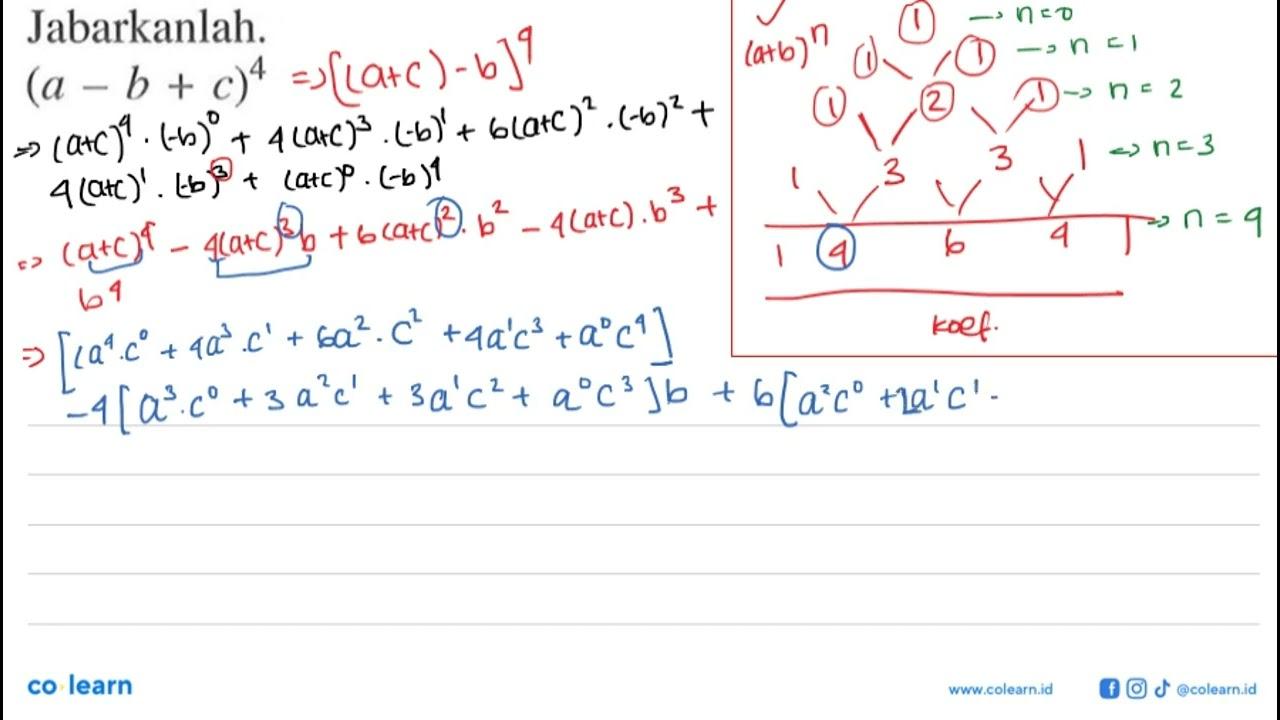 Jabarkanlah.
(a − b + c)⁴ ⇒ [(a+c) − b]⁴
⇒ (a+c)⁴ · (-b)⁰ + 4(a+c)³ · (-b)¹ + 6(a+c)² · (-b)² +
4(a+c)¹ · (-b)³ + (a+c)⁰ · (-b)⁴
⇒ (a+c)⁴ − 4(a+c)³b + 6(a+c)² · b² − 4(a+c) · b³ +
b⁴
⇒ [(a⁴·c⁰ + 4a³·c¹ + 6a²·c² + 4a¹c³ + a⁰c⁴]
−4[a³·c⁰ + 3a²c¹ + 3a¹c² + a⁰c³]b + 6[a²c⁰ + 2a¹c¹ -
✓
(a+b)ⁿ
1 → n=0
1 1 → n=1
1 2 1 → n=2
1 3 3 1 ⇔ n=3
1 4 6 4 1 ⇒ n=4
koef.
co·learn
www.colearn.id
@colearn.id